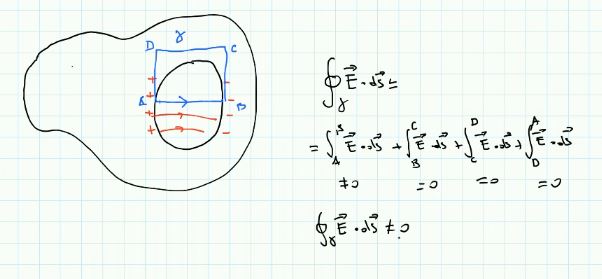 D γ C
A B
+ + + +
- - - -
∮γ E⃗ · ds⃗ =
= ∫_A^B E⃗ · ds⃗ + ∫_B^C E⃗ · ds⃗ + ∫_C^D E⃗ · ds⃗ + ∫_D^A E⃗ · ds⃗
≠0 =0 =0 =0
∮γ E⃗ · ds⃗ ≠ 0